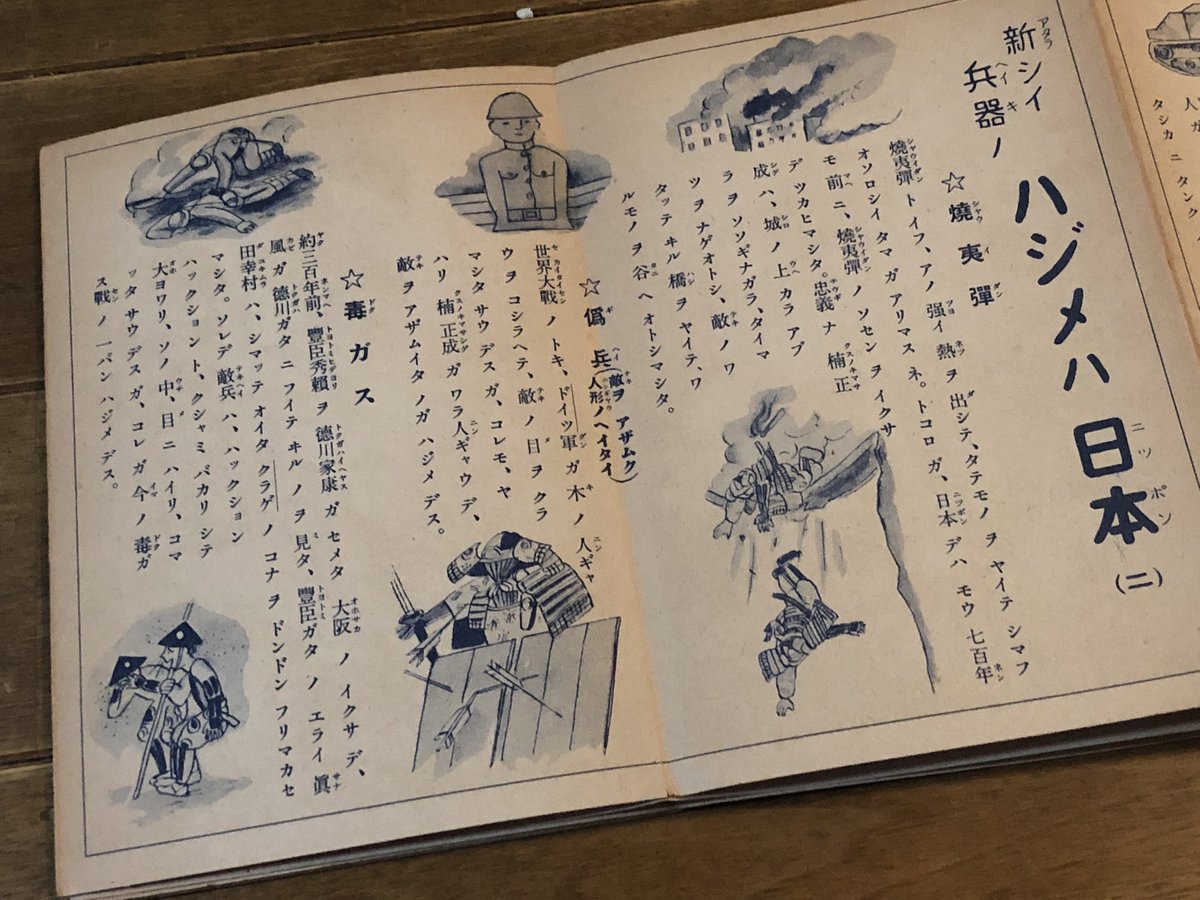 人ガ
タシカニタンク
新シイ
兵器ノ
ハジメハ日本(二)
☆燒夷彈
燒夷彈トイフ、アノ强イ熱ヲ出シテ、タテモノヲヤイテシマフ
オソロシイタマガアリマスネ。トコロガ、日本デハモウ七百年
モ前ニ、燒夷彈ノソセンヲイクサ
デツカヒマシタ。忠義ナ楠正
成ハ、城ノ上カラアブ
ラヲソソギナガラ、タイマ
ツヲナゲオトシ、敵ノワ
タッテヰル橋ヲヤイテ、ワ
ルモノヲ谷ヘオトシマシタ。
☆僞兵(敵ヲアザムク
人形ノヘイタイ)
世界大戰ノトキ、ドイツ軍ガ木ノ人ギャ
ウヲコシラヘテ、敵ノ目ヲクラ
マシタサウデスガ、コレモ、ヤ
ハリ楠正成ガワラ人ギャウデ、
敵ヲアザムイタノガハジメデス。
☆毒ガス
約三百年前、豐臣秀賴ヲ德川家康ガセメタ大阪ノイクサデ、
風ガ德川ガタニフイテヰルノヲ見タ、豐臣ガタノエライ眞
田幸村ハ、シマッテオイタクラゲノコナヲドンドンフリマカセ
マシタ。ソレデ敵兵ハ、ハックション
ハックショント、クシャミバカリシテ
大ヨワリ、ソノ中、目ニハイリ、コマ
ッタサウデスガ、コレガ今ノ毒ガ
ス戰ノ一バンハジメデス。